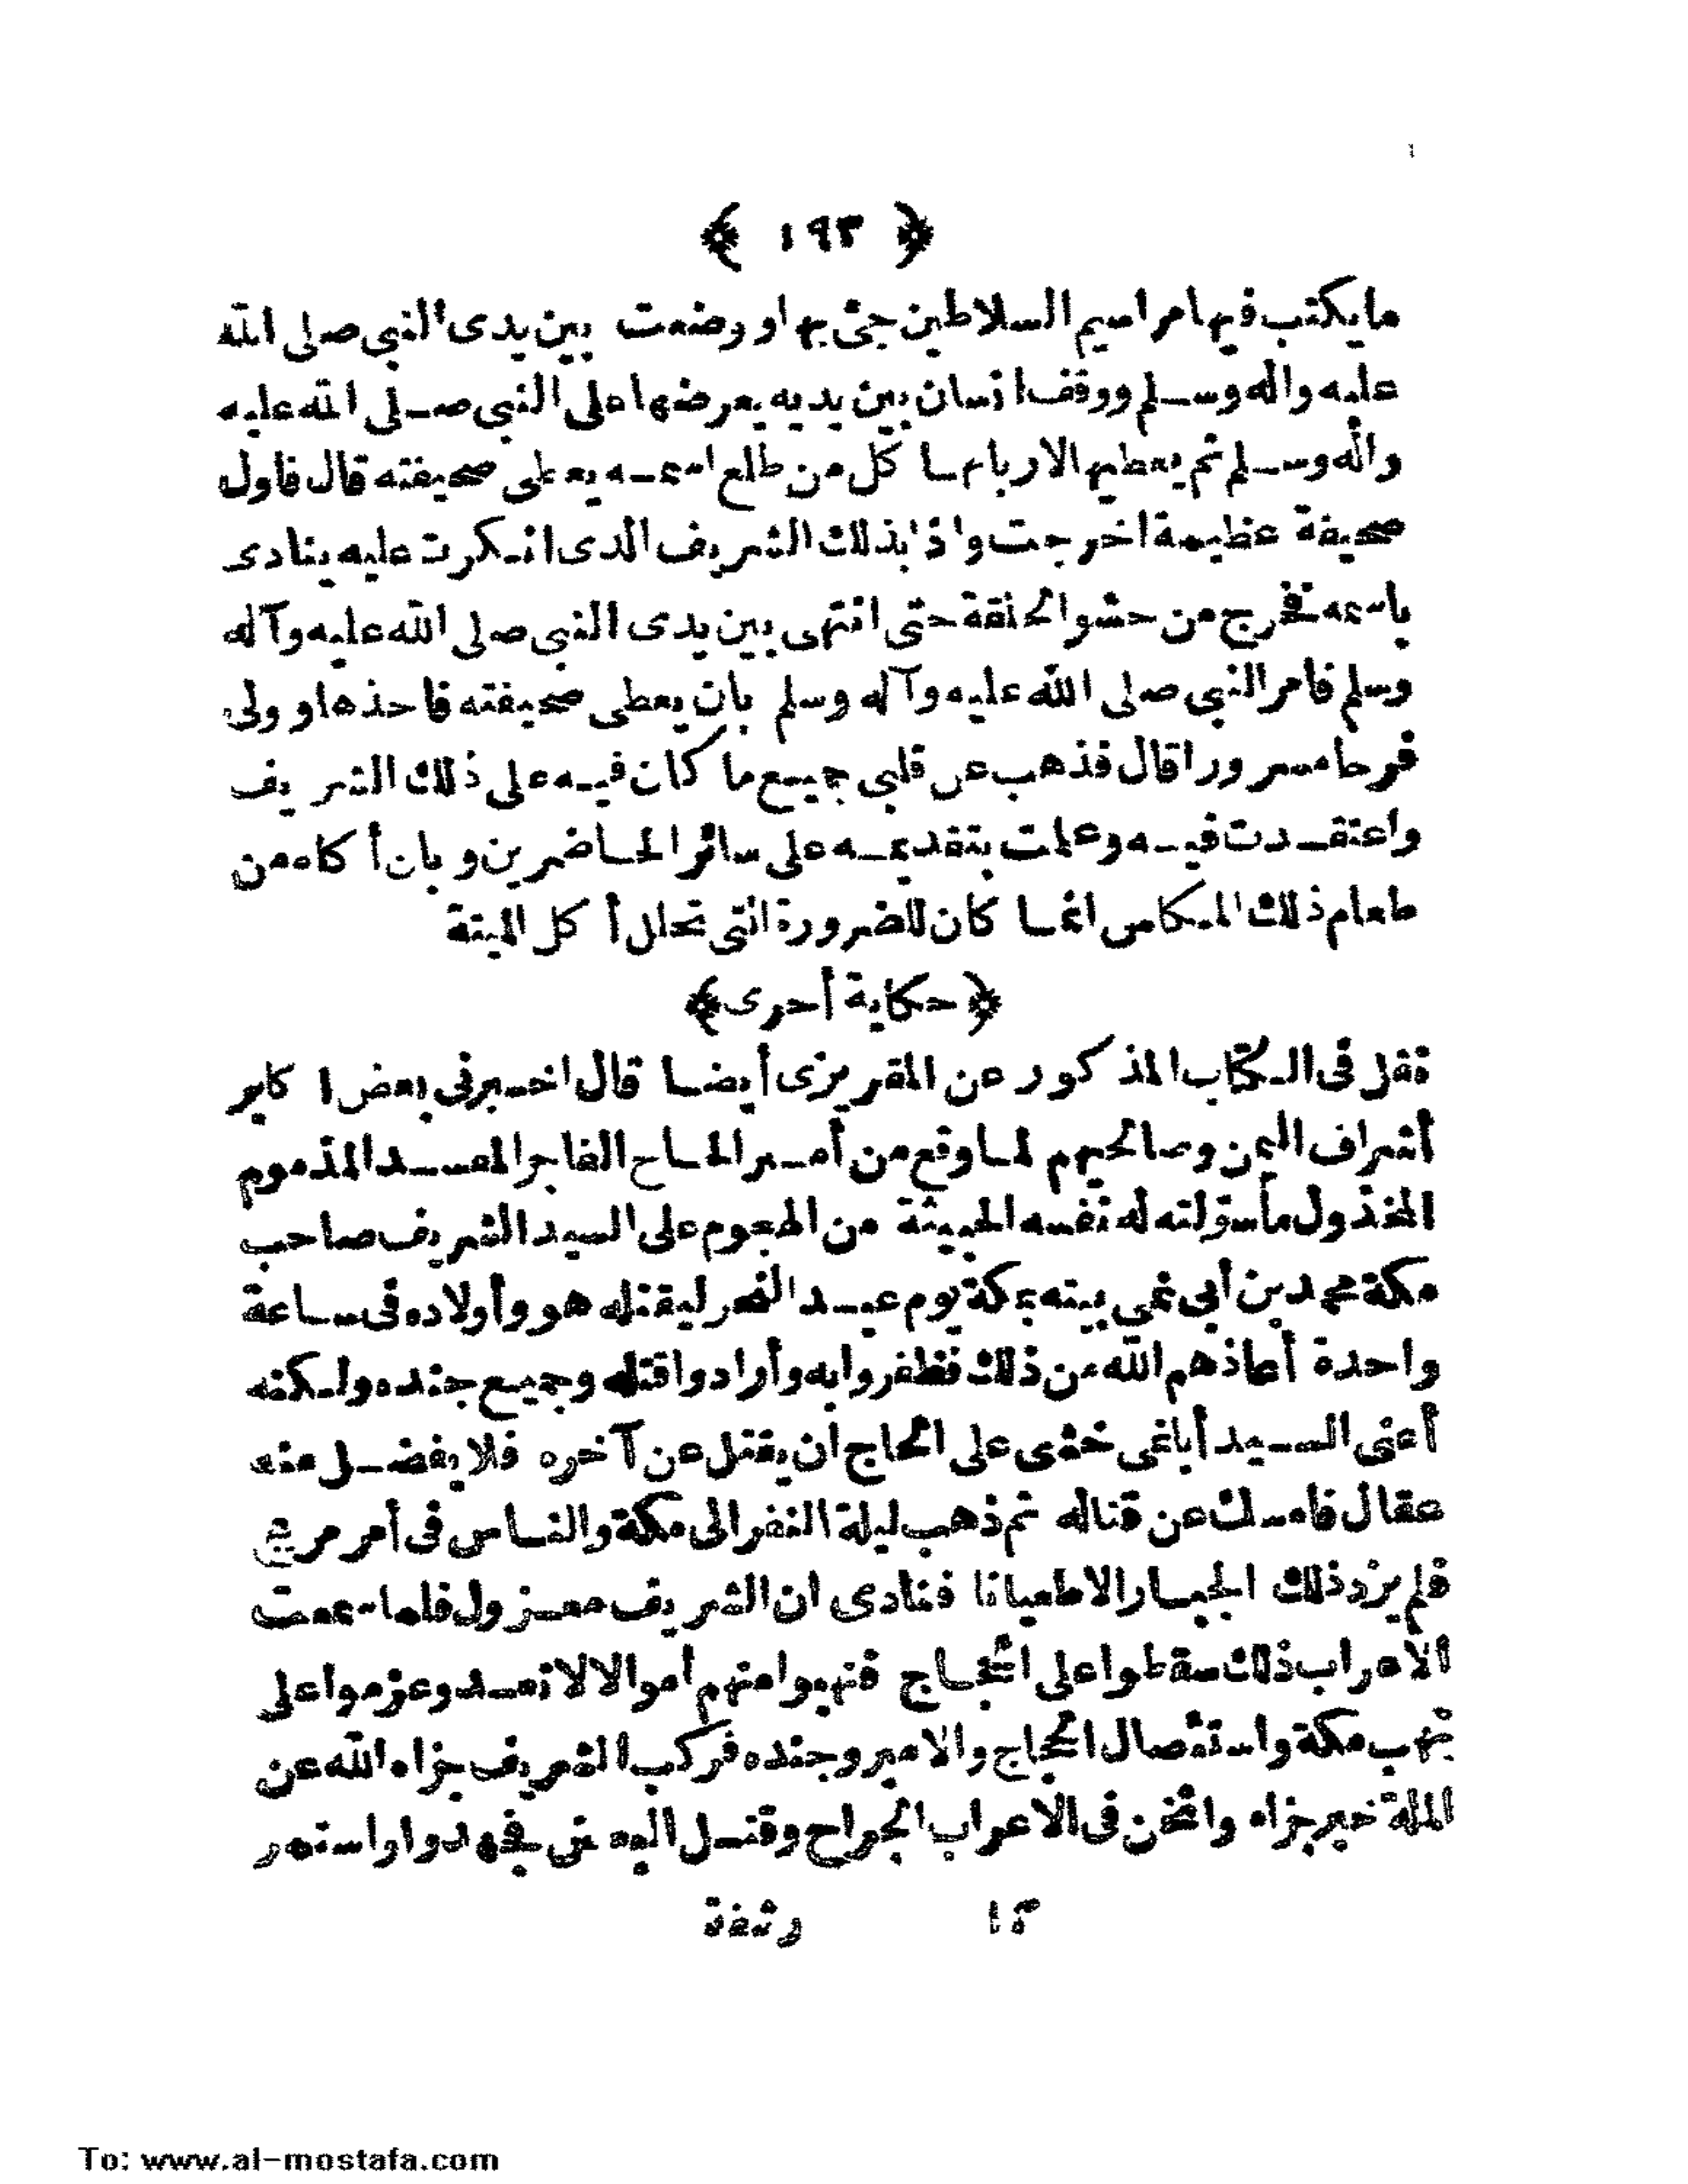 ﴿ ١٩٣ ﴾
ما يكتب فيها مراسيم السلاطين جئ بها ووضعت بين يدى النبي صلى الله
عليه واله وسلم ووقف انسان بين يديه يعرضها على النبي صلى الله عليه
واله وسلم ثم يعطيها لاربابها كل من طلع اسمه يعطى صحيفته قال فاول
صحيفة عظيمة اخرجت واذا بذلك الشريف الذى انكرت عليه ينادى
باسمه فخرج من حشو الحلقة حتى انتهى بين يدى النبي صلى الله عليه وآله
وسلم فامر النبي صلى الله عليه وآله وسلم بان يعطى صحيفته فاخذها وولى
فرحا مسرورا قال فذهب عن قلبي جميع ما كان فيه على ذلك الشريف
واعتقدت فيه وعلمت بتقديمه على سائر الحاضرين وبان أكله من
طعام ذلك المكاس انما كان للضرورة التي تحلل أكل الميتة
﴿ حكاية أخرى ﴾
نقل فى الكتاب المذكور عن المقريزى أيضا قال اخبرنى بعض اكابر
أشراف اليمن وصالحيهم لما وقع من أمير الحاج الفاجر المفسد المذموم
المخذول ما سولته له نفسه الخبيثة من الهجوم على السيد الشريف صاحب
مكة محمد بن أبى نمي بيته بمكة يوم عيد النحر ليقتله هو وأولاده فى ساعة
واحدة أعاذهم الله من ذلك فظفروا به وأرادوا قتله وجميع جنده ولكنه
أعنى السيد أبا نمى خشى على الحاج ان يقتل عن آخره فلا يفضل منه
عقال فامسك عن قتاله ثم ذهب ليلة النفر الى مكة والناس فى أمر مريج
فلم يزد ذلك الجبار الا طغيانا فنادى ان الشريف معزول فلما سمعت
الاعراب ذلك سقطوا على الحجاج فنهبوا منهم أموالا لا تعد وعزموا على
نهب مكة واستئصال الحجاج والامير وجنده فركب الشريف جزاه الله عن
الملة خير جزاه واثخن فى الاعراب الجراح وقتل البعض فخمدوا واستمر
١٣ رشفة
To: www.al-mostafa.com